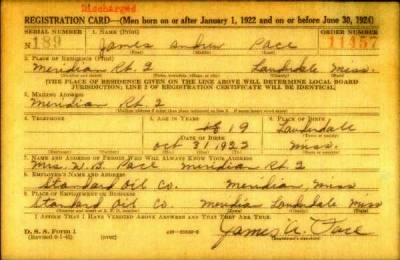 Discharged
REGISTRATION CARD—(Men born on or after January 1, 1922 and on or before June 30, 1924)
SERIAL NUMBER 1. NAME (Print) ORDER NUMBER
N 189 James Andrew Pace 11457
(First) (Middle) (Last)
2. PLACE OF RESIDENCE (Print)
Meridian Rt. 2 Lauderdale Miss.
(THE PLACE OF RESIDENCE GIVEN ON THE LINE ABOVE WILL DETERMINE LOCAL BOARD
JURISDICTION; LINE 2 OF REGISTRATION CERTIFICATE WILL BE IDENTICAL)
3. MAILING ADDRESS
Meridian Rt. 2
4. TELEPHONE 5. AGE IN YEARS 6. PLACE OF BIRTH
19 Lauderdale
DATE OF BIRTH
Oct 31 1922 Miss.
7. NAME AND ADDRESS OF PERSON WHO WILL ALWAYS KNOW YOUR ADDRESS
Mrs. W. B. Pace Meridian Rt 2
8. EMPLOYER'S NAME AND ADDRESS
Standard Oil Co. Meridian, Miss
9. PLACE OF EMPLOYMENT OR BUSINESS
Standard Oil Co. Meridian Lauderdale Miss
I AFFIRM THAT I HAVE VERIFIED ABOVE ANSWERS AND THAT THEY ARE TRUE.
D. S. S. Form 1
James A. Pace